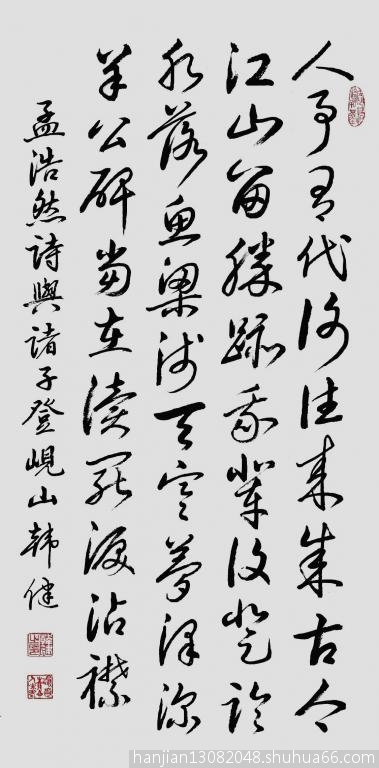 人事有代謝往來成古今
江山留勝跡我輩復登臨
水落魚梁淺天寒夢澤深
羊公碑尚在讀罷淚沾襟
孟浩然詩與諸子登峴山韓健
hanjian13082048.shuhua66.com